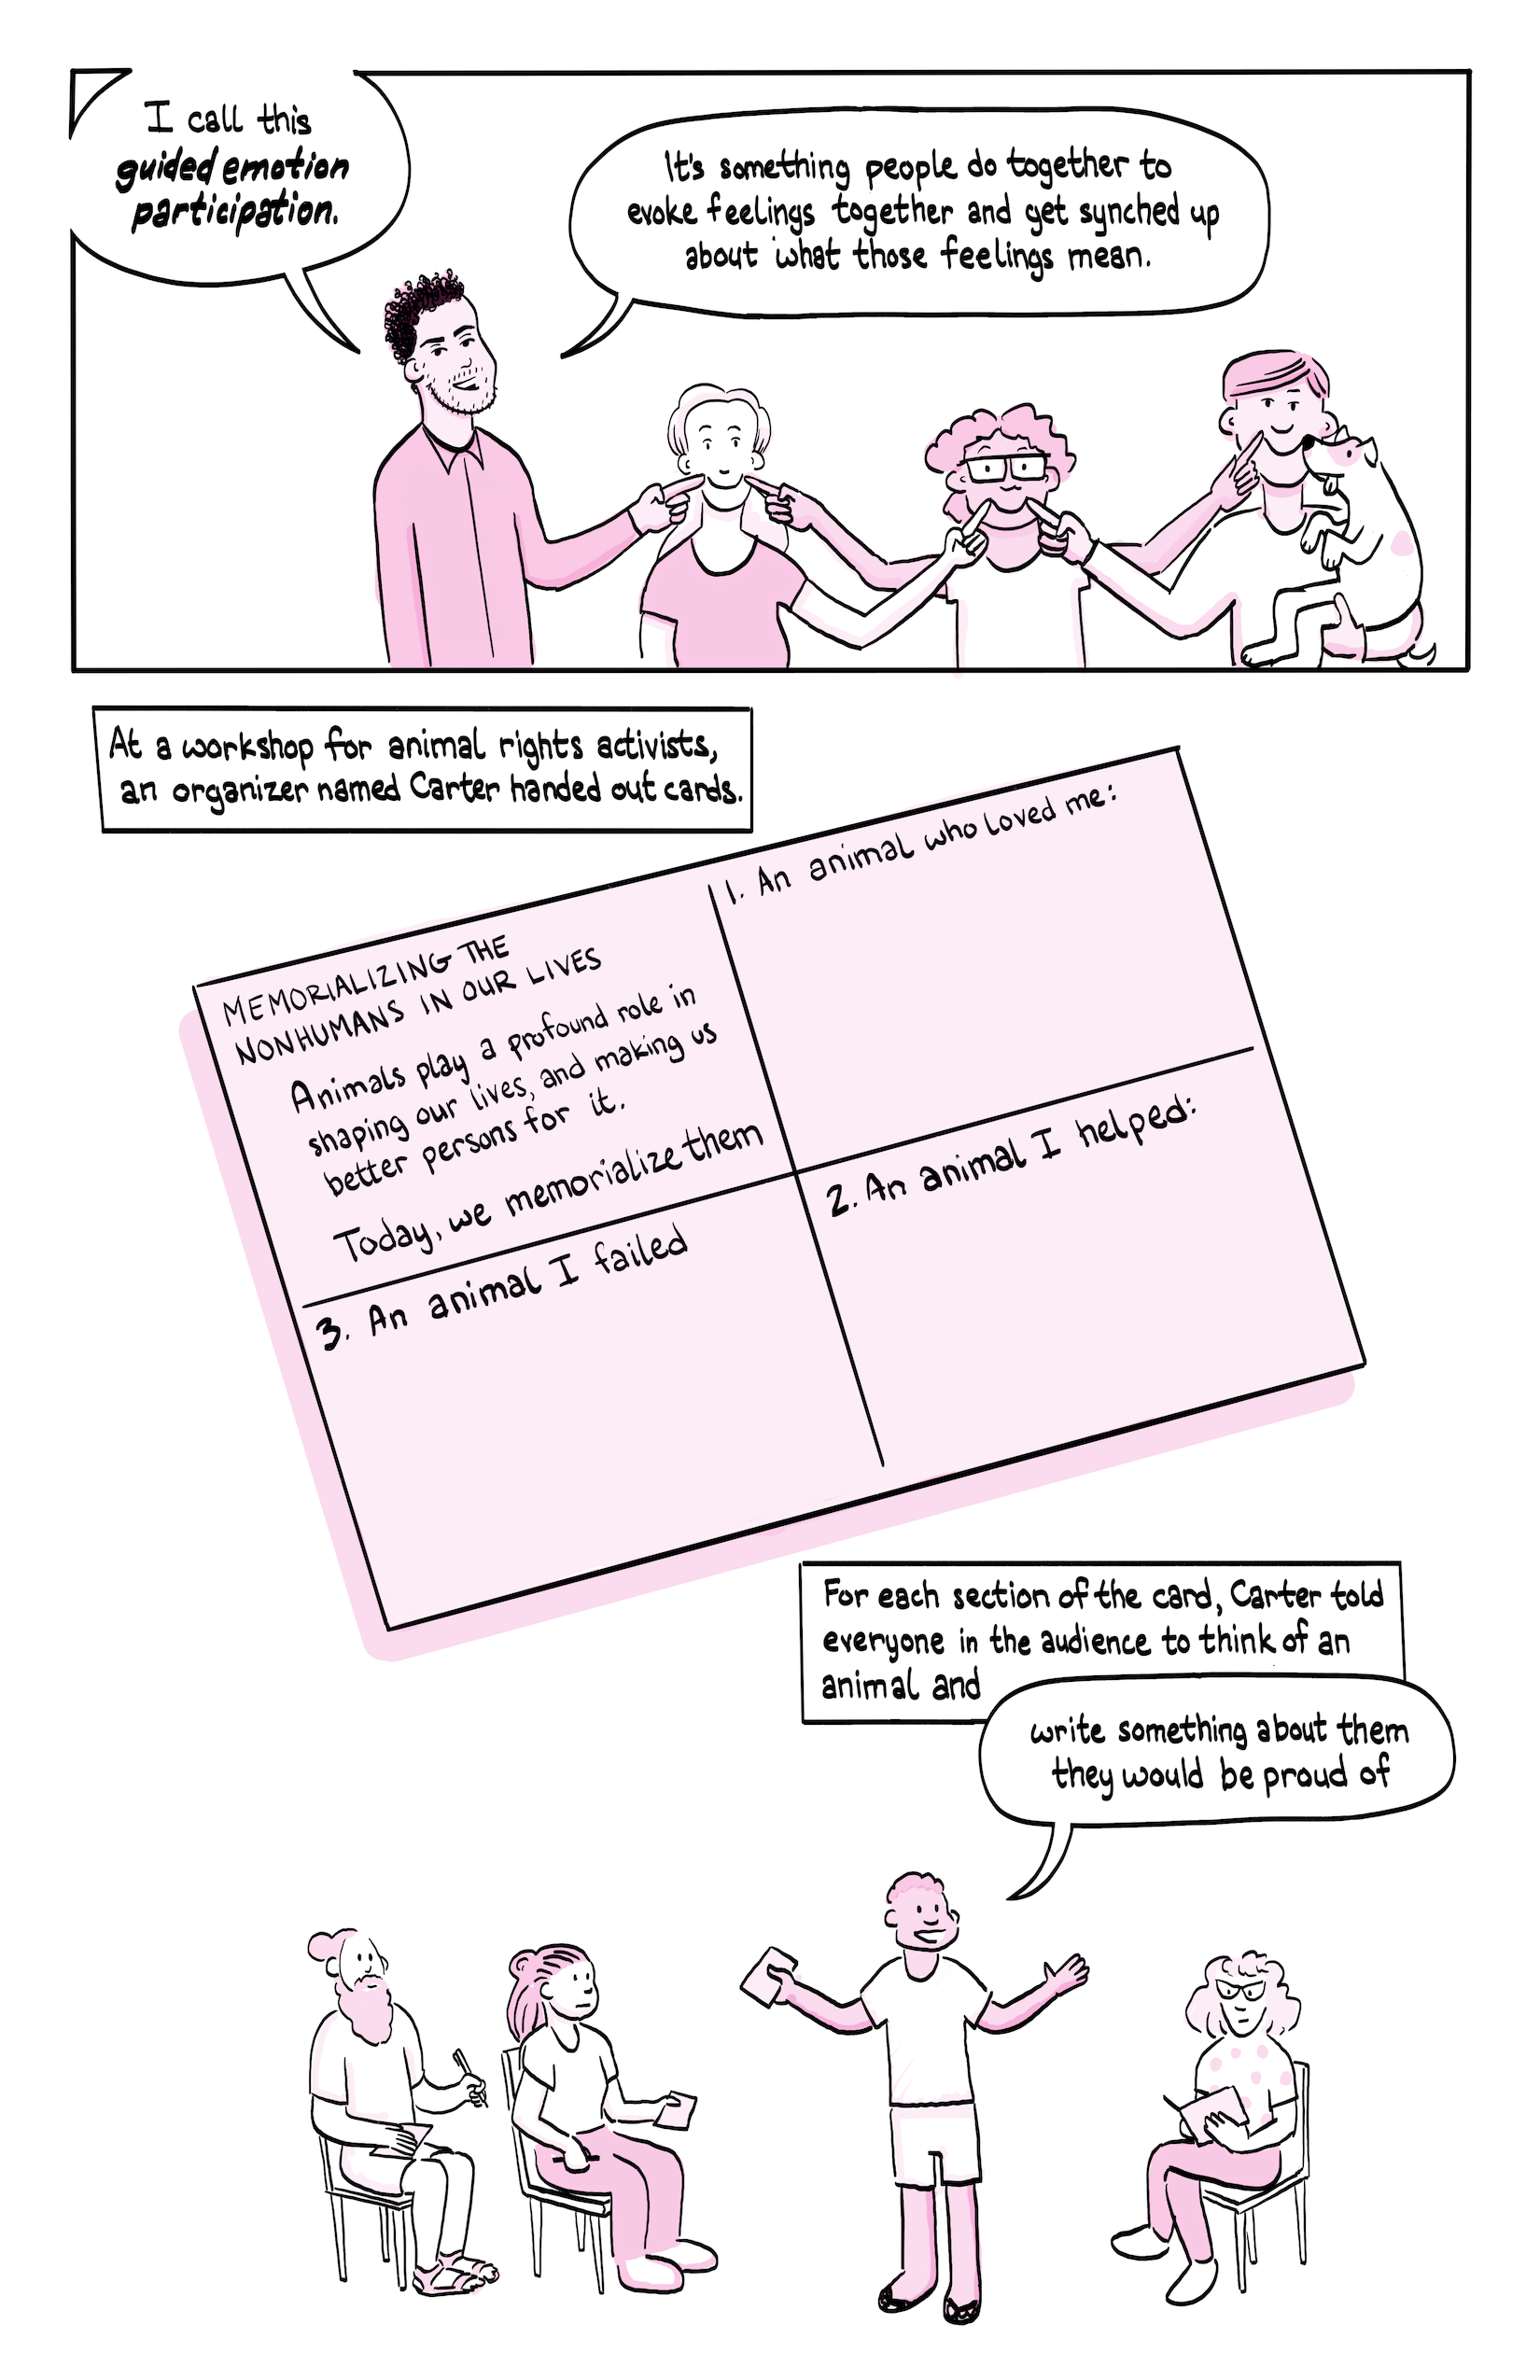 I call this
guided emotion
participation.
It's something people do together to
evoke feelings together and get synched up
about what those feelings mean.
At a workshop for animal rights activists,
an organizer named Carter handed out cards.
MEMORIALIZING THE
NONHUMANS IN OUR LIVES
Animals play a profound role in
shaping our lives, and making us
better persons for it.
Today, we memorialize them
1. An animal who loved me:
2. An animal I helped:
3. An animal I failed
For each section of the card, Carter told
everyone in the audience to think of an
animal and
write something about them
they would be proud of